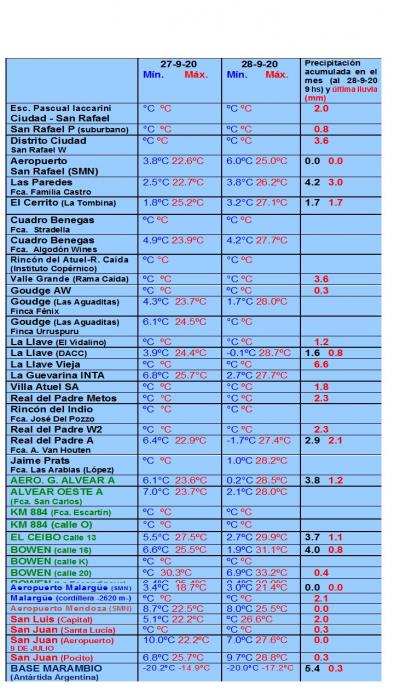 27-9-20 28-9-20 Precipitación
Mín. Máx. Mín. Máx. acumulada en el
mes (al 28-9-20
9 hs) y última lluvia
(mm)
Esc. Pascual Iaccarini °C ºC ºC ºC 2.0
Ciudad - San Rafael
San Rafael P (suburbano) °C ºC ºC ºC 0.8
Distrito Ciudad ºC ºC ºC ºC 3.6
San Rafael W
Aeropuerto 3.8ºC 22.6ºC 6.0ºC 25.0ºC 0.0 0.0
San Rafael (SMN)
Las Paredes 2.5°C 22.7°C 3.8°C 26.2°C 4.2 3.0
Fca. Familia Castro
El Cerrito (La Tombina) 1.8ºC 25.2ºC 3.2°C 27.1°C 1.7 1.7
Cuadro Benegas ºC ºC ºC ºC
Fca. Stradella
Cuadro Benegas 4.9ºC 23.9ºC 4.2°C 27.7°C
Fca. Algodón Wines
Rincón del Atuel-R. Caída °C °C °C °C
(Instituto Copérnico)
Valle Grande (Rama Caída) ºC ºC ºC ºC 3.6
Goudge AW ºC ºC ºC ºC 0.3
Goudge (Las Aguaditas) 4.3°C 23.7°C 1.7°C 28.0°C
Finca Fénix
Goudge (Las Aguaditas) 6.1ºC 24.5°C °C °C
Finca Urruspuru
La Llave (El Vidalino) ºC ºC ºC ºC 1.2
La Llave (DACC) 3.9°C 24.4°C -0.1°C 28.7°C 1.6 0.8
La Llave Vieja ºC ºC ºC ºC 6.6
La Guevarina INTA 6.8°C 25.7°C 2.7°C 27.7°C
Villa Atuel SA ºC ºC ºC ºC 1.8
Real del Padre Metos ºC ºC ºC ºC 2.3
Rincón del Indio ºC ºC ºC ºC
Fca. José Del Pozzo
Real del Padre W2 ºC ºC ºC ºC 2.3
Real del Padre A 6.4°C 22.9°C -1.7°C 27.4°C 2.9 2.1
Fca. A. Van Houten
Jaime Prats ºC ºC 1.0°C 28.2°C
Fca. Las Arabias (López)
AERO. G. ALVEAR A 6.1°C 23.6°C 0.2°C 28.5°C 3.8 1.2
ALVEAR OESTE A 7.0°C 23.7°C 2.1°C 28.0°C
(Fca. San Carlos)
KM 884 (Fca. Escartín) ºC ºC ºC ºC
KM 884 (calle O) ºC ºC ºC ºC
EL CEIBO Calle 13 5.5°C 27.5°C 2.7°C 29.9°C 3.7 1.1
BOWEN (calle 16) 6.6°C 25.5°C 1.9°C 31.1°C 4.0 0.8
BOWEN (calle K) ºC ºC ºC ºC
BOWEN (calle 20) ºC 30.3ºC 6.9°C 33.2°C 0.4
Aeropuerto Malargüe (SMN) 3.4°C 18.7°C 3.0°C 21.4°C 0.0 0.0
Malargüe (cordillera -2620 m-) °C ºC ºC ºC 2.1
Aeropuerto Mendoza (SMN) 8.7°C 22.5°C 8.0°C 25.5°C 0.0
San Luis (Capital) 5.1°C 22.2°C °C 26.6°C 2.0
San Juan (Santa Lucía) ºC ºC ºC ºC 0.3
San Juan (Aeropuerto) 10.0°C 22.2°C 7.0°C 27.6°C 0.0
9 DE JULIO
San Juan (Pocito) 6.8°C 25.7°C 9.7°C 28.8°C 0.3
BASE MARAMBIO -20.2°C -14.9°C -20.0°C -17.2°C 5.4 0.3
(Antártida Argentina)